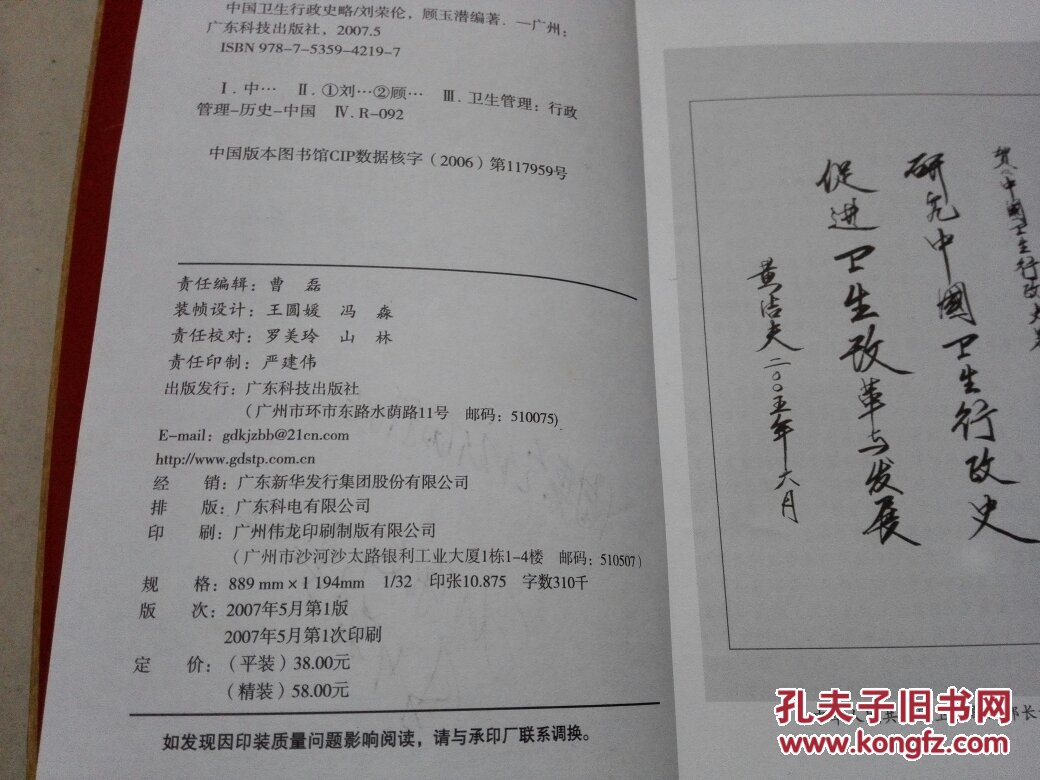 中国卫生行政史略/刘荣伦，顾玉潜编著．—广州：
广东科技出版社，2007.5
ISBN 978-7-5359-4219-7
Ⅰ．中… Ⅱ．①刘…②顾… Ⅲ．卫生管理：行政
管理-历史-中国 Ⅳ．R-092
中国版本图书馆CIP数据核字（2006）第117959号
责任编辑：曹 磊
装帧设计：王圆媛 冯 淼
责任校对：罗美玲 山 林
责任印制：严建伟
出版发行：广东科技出版社
（广州市环市东路水荫路11号 邮码：510075）
E-mail：gdkjzbb@21cn.com
http://www.gdstp.com.cn
经 销：广东新华发行集团股份有限公司
排 版：广东科电有限公司
印 刷：广州伟龙印刷制版有限公司
（广州市沙河沙太路银利工业大厦1栋1-4楼 邮码：510507）
规 格：889 mm×1 194mm 1/32 印张10.875 字数310千
版 次：2007年5月第1版
2007年5月第1次印刷
定 价：（平装）38.00元
（精装）58.00元
如发现因印装质量问题影响阅读，请与承印厂联系调换。
贺《中國卫生行政史
研究中國卫生行政史
促进卫生改革与发展
黄洁夫 二〇〇五年六月
部长
孔夫子旧书网
www.kongfz.com